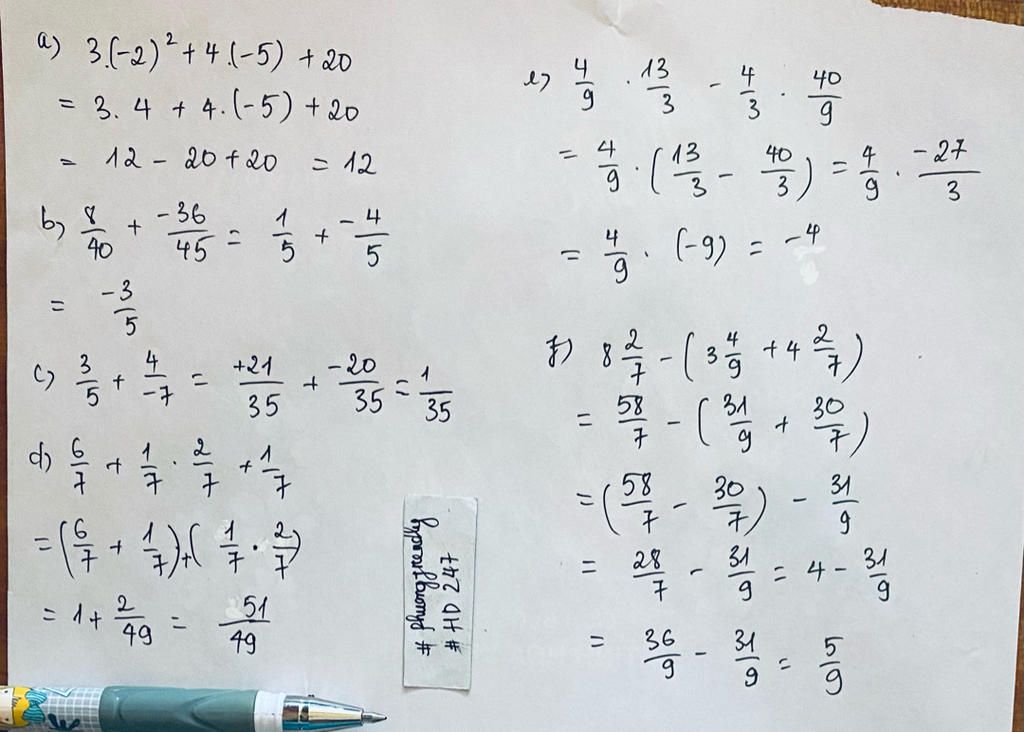 a) 3.(-2)² + 4.(-5) + 20
= 3. 4 + 4.(-5) + 20
= 12 - 20 + 20 = 12
b) 8/40 + -36/45 = 1/5 + -4/5
= -3/5
c) 3/5 + 4/-7 = +21/35 + -20/35 = 1/35
d) 6/7 + 1/7 . 2/7 + 1/7
= (6/7 + 1/7) + (1/7 . 2/7)
= 1 + 2/49 = 51/49
e) 4/9 . 13/3 - 4/3 . 40/9
= 4/9 . (13/3 - 40/3) = 4/9 . -27/3
= 4/9 . (-9) = -4
f) 8 2/7 - (3 4/9 + 4 2/7)
= 58/7 - (31/9 + 30/7)
= (58/7 - 30/7) - 31/9
= 28/7 - 31/9 = 4 - 31/9
= 36/9 - 31/9 = 5/9
# HD 247